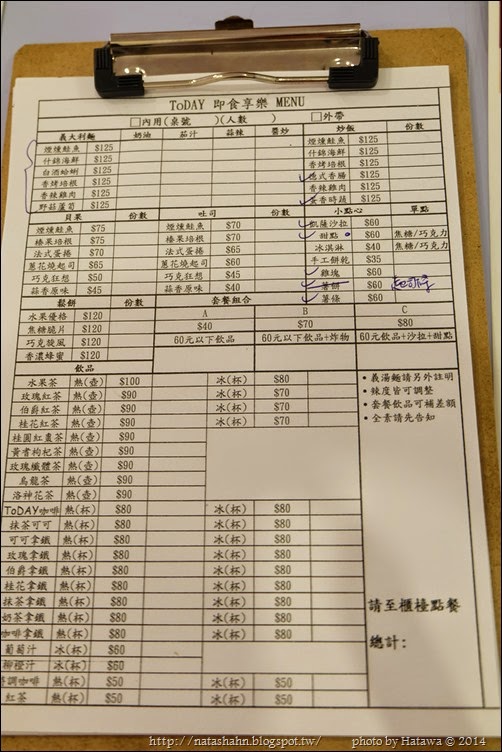 ToDAY 即食享樂 MENU
□內用(桌號 )(人數 ) □外帶
義大利麵 奶油 茄汁 蒜辣 醬炒 炒飯 份數
煙燻鮭魚 $125 煙燻鮭魚 $125
什錦海鮮 $125 什錦海鮮 $125
白酒蛤蜊 $125 香烤培根 $125
香烤培根 $125 德式香腸 $125
香辣雞肉 $125 香辣雞肉 $125
野菇蘆筍 $125 蛋香時蔬 $125
貝果 份數 吐司 份數 小點心 單點
煙燻鮭魚 $75 煙燻鮭魚 $70 凱薩沙拉 $60
榛果培根 $75 榛果培根 $70 甜點 $60 焦糖/巧克力
法式蛋捲 $70 法式蛋捲 $70 冰淇淋 $40 焦糖/巧克力
蔥花燒起司 $65 蔥花燒起司 $60 手工餅乾 $35
巧克狂想 $50 巧克狂想 $45 雞塊 $60
蒜香原味 $45 蒜香原味 $40 薯餅 $60
薯條 $60
鬆餅 份數 套餐組合
水果優格 $120 A B C
焦糖脆片 $120 $40 $70 $80
巧克旋風 $120 60元以下飲品 60元以下飲品+炸物 60元以下飲品+沙拉+甜點
香濃蜂蜜 $120
飲品
水果茶 熱(壺) $100 冰(杯) $80
玫瑰紅茶 熱(壺) $90 冰(杯) $70
伯爵紅茶 熱(壺) $90 冰(杯) $70
桂花紅茶 熱(壺) $90 冰(杯) $70
桂圓紅棗茶 熱(壺) $90
黃耆枸杞茶 熱(壺) $90
玫瑰纖體茶 熱(壺) $90
烏龍茶 熱(壺) $90
洛神花茶 熱(壺) $90
ToDAY咖啡 熱(杯) $80 冰(杯) $80
抹茶可可 熱(杯) $80 冰(杯) $80
可可拿鐵 熱(杯) $80 冰(杯) $80
玫瑰拿鐵 熱(杯) $80 冰(杯) $80
伯爵拿鐵 熱(杯) $80 冰(杯) $80
桂花拿鐵 熱(杯) $80 冰(杯) $80
抹茶拿鐵 熱(杯) $80 冰(杯) $80
奶茶拿鐵 熱(杯) $80 冰(杯) $80
咖啡拿鐵 熱(杯) $80 冰(杯) $80
葡萄汁 冰(杯) $60
柳橙汁 冰(杯) $60
調咖啡 熱(杯) $50 冰(杯) $50
紅茶 熱(杯) $50 冰(杯) $50
• 義湯麵請另外註明
• 辣度皆可調整
• 套餐飲品可補差額
• 全素請先告知
請至櫃檯點餐
總計:
http://natashahn.blogspot.tw/ photo by Hatawa © 2014